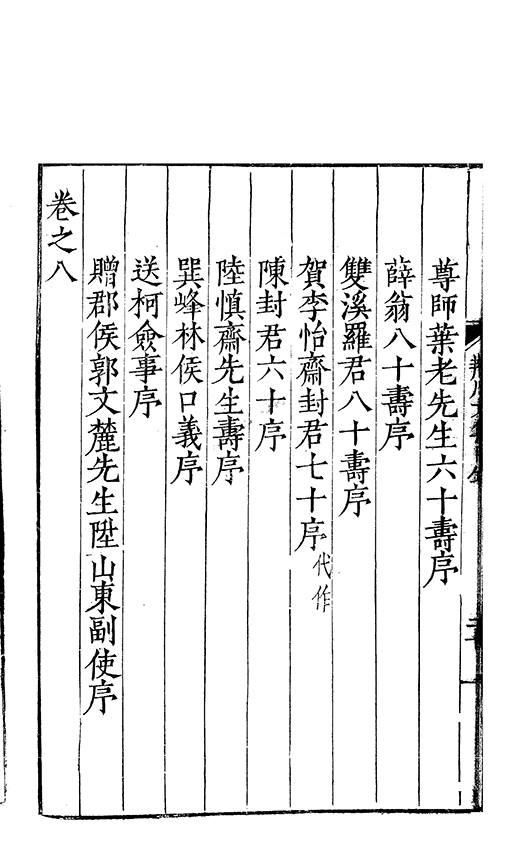 尊師葉老先生六十壽序
薛翁八十壽序
雙溪羅君八十壽序
賀李怡齋封君七十序代作
陳封君六十序
陸慎齋先生壽序
巽峰林侯口義序
送柯僉事序
贈郡侯郭文麓先生陞山東副使序
卷之八